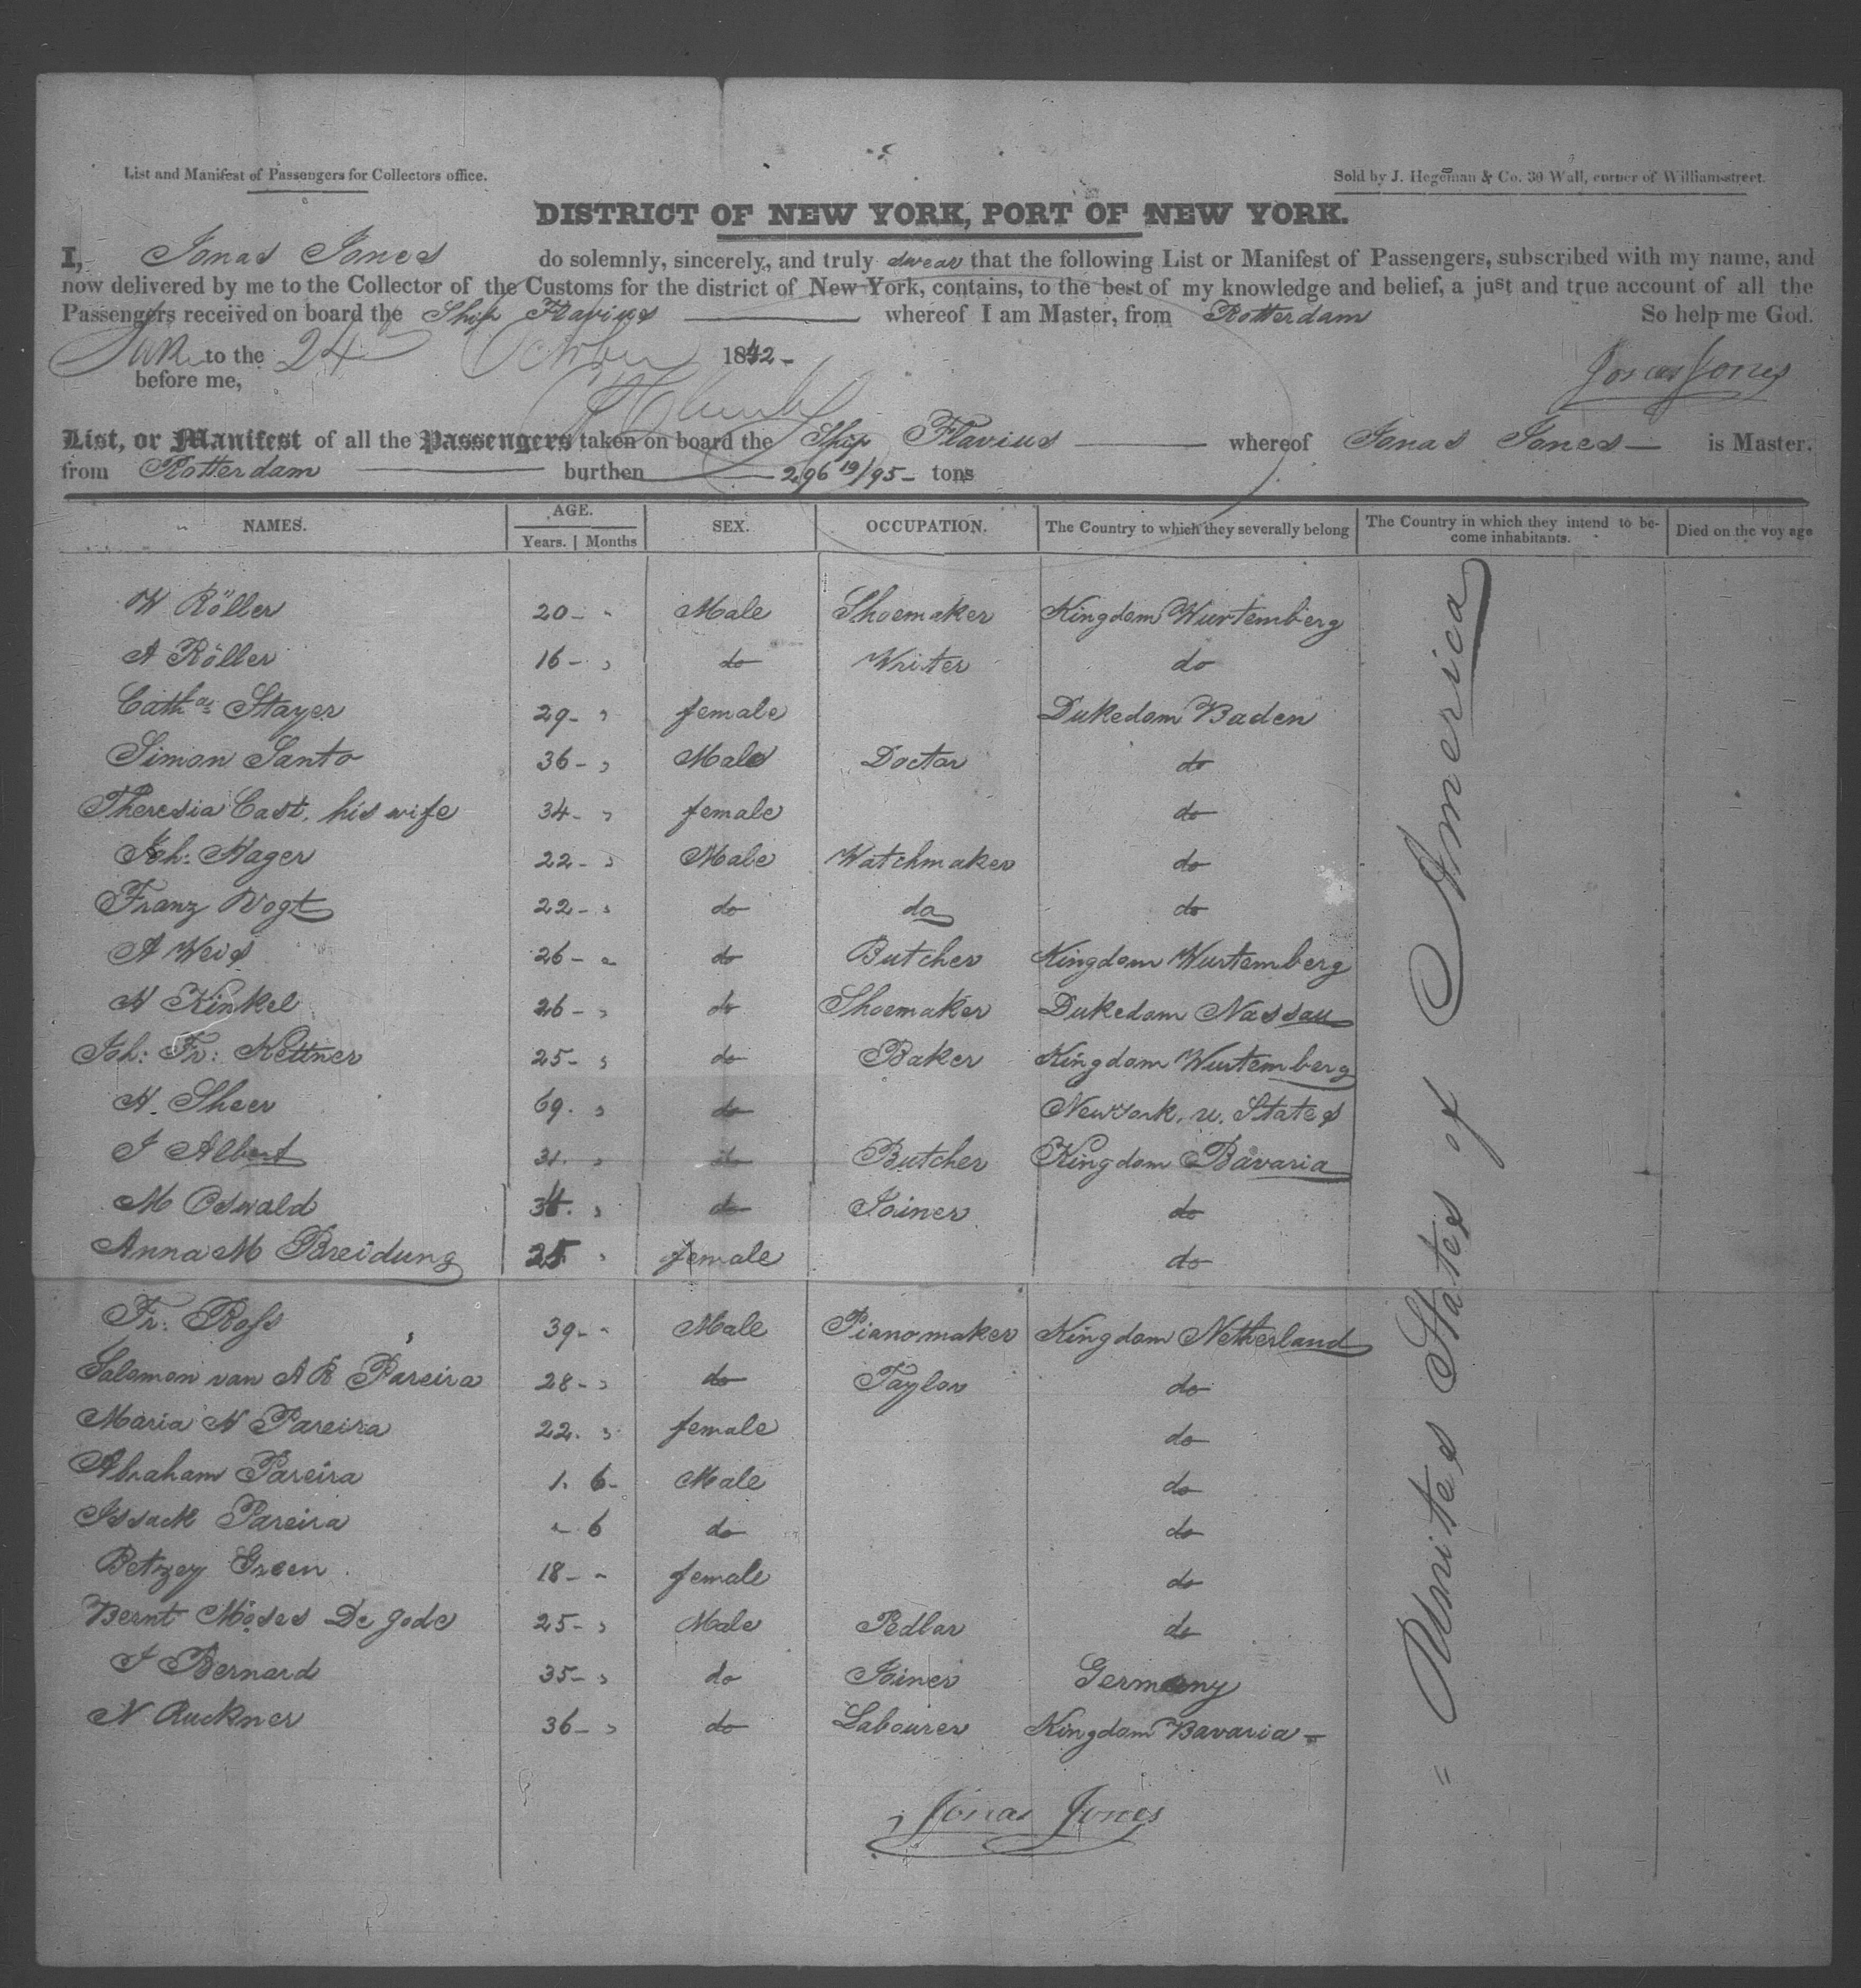 List and Manifest of Passengers for Collectors office.
Sold by J. Hegeman & Co. 30 Wall, corner of William-street.
DISTRICT OF NEW YORK, PORT OF NEW YORK.
I, Jonas Jones do solemnly, sincerely, and truly swear that the following List or Manifest of Passengers, subscribed with my name, and
now delivered by me to the Collector of the Customs for the district of New York, contains, to the best of my knowledge and belief, a just and true account of all the
Passengers received on board the Ship Flavius whereof I am Master, from Rotterdam So help me God.
to the 24 October 1842 -
Jonas Jones
before me,
List, or Manifest of all the Passengers taken on board the Ship Flavius whereof Jonas Jones is Master.
from Rotterdam burthen 296 19/95 - tons
NAMES. AGE. Years. | Months SEX. OCCUPATION. The Country to which they severally belong The Country in which they intend to become inhabitants. Died on the voyage
W Röller 20 - " Male Shoemaker Kingdom Wurtemberg
A Röller 16 - " do Writer do
Cath.a Stayer 29 - " female Dukedom Baden
Simon Santo 36 - " Male Doctor do
Theresia Cast, his wife 34 - " female do
Joh: Hager 22 - " Male Watchmaker do
Franz Vogt 22 - " do do do
A Weis 26 - " do Butcher Kingdom Wurtemberg
H Kinkel 26 - " do Shoemaker Dukedom Nassau
Joh: Fr: Kettner 25 - " do Baker Kingdom Wurtemberg
H. Sheer 69. " do New York, u. States
J Albert 31. " do Butcher Kingdom Bavaria
M Oswald " do Joiner do
Anna M Breidung 25 " female do
Fr: Ross 39 - " Male Pianomaker Kingdom Netherland
Salomon van A R Pareira 28 - " do Taylor do
Maria H Pareira 22. " female do
Abraham Pareira 1. 6 - Male do
Issack Pareira " 6 do do
Betzey Green 18 - " female do
Bernt Moses De Jode 25 - " Male Pedlar do
J Bernard 35 - " do Joiner Germany
N Ruckner 36 - " do Labourer Kingdom Bavaria -
= Unites States of America
Jonas Jones